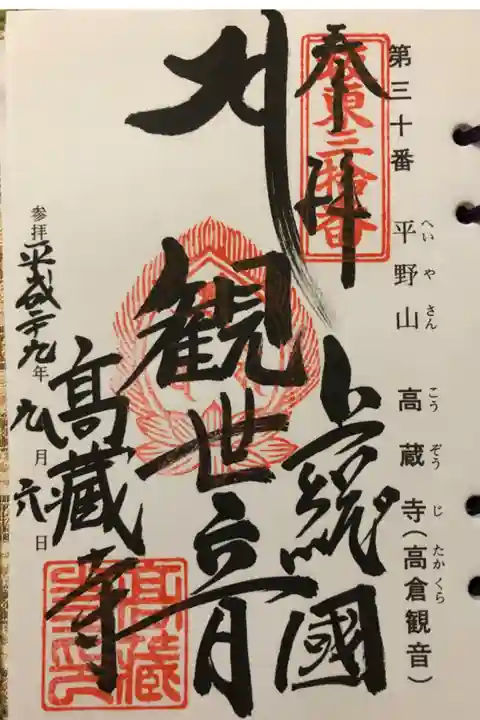 第三十番 平野山 高蔵寺(高倉観音)
へいやさん こうぞうじ たかくら
奉拝
坂東三拾番
上総國
観世音
髙蔵寺
参拝 平成二十九年 九月 六日
髙蔵